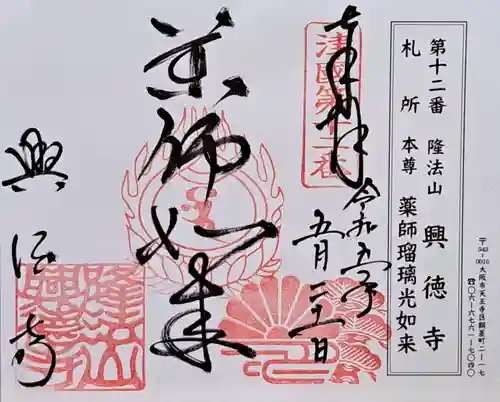 第十二番 隆法山 興徳寺
札所本尊 薬師瑠璃光如来
〒543-0016 大阪市天王寺区餌差町二-一七
☎〇六-六七六一-七〇〇四
奉拝
津國第十二番
令和五年
五月二十一日
薬師如来
興徳寺
隆法山
興徳寺